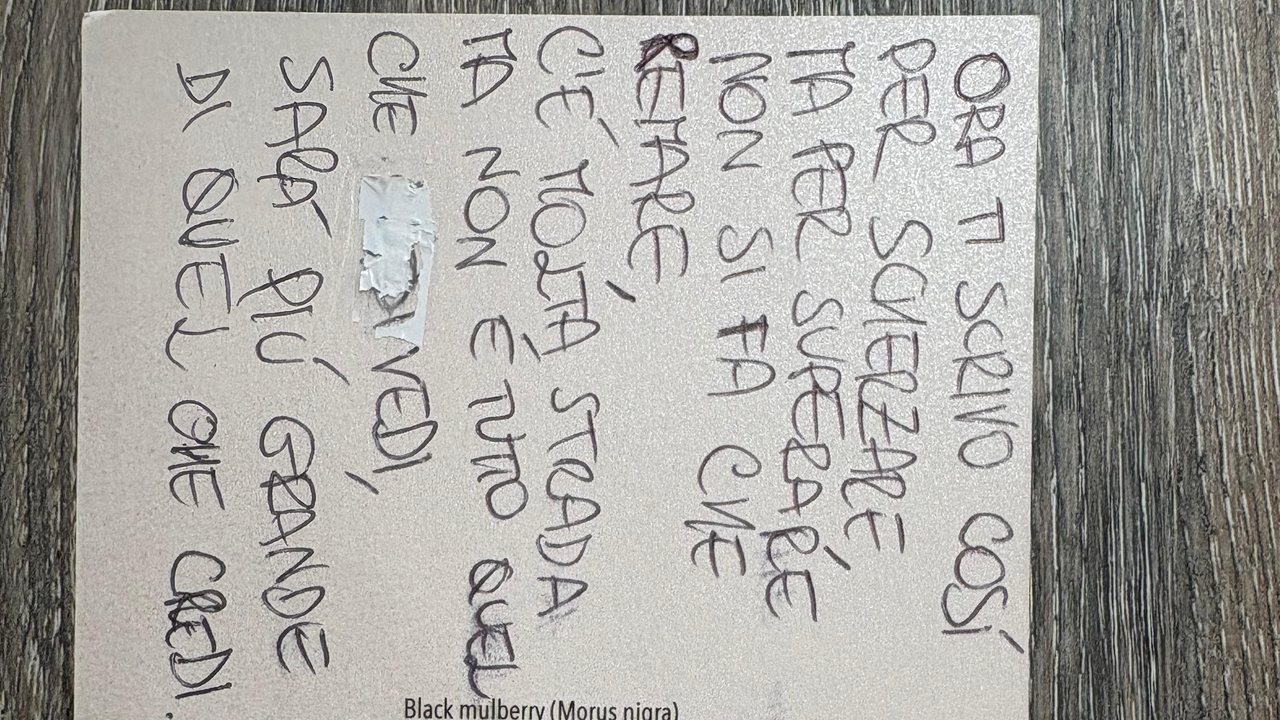 ORA TI SCRIVO COSÍ
PER SCHERZARE
MA PER SUPERARE
NON SI FA CHE
REMARE,
C'É MOLTA STRADA
MA NON É TUTTO QUEL
CHE VEDI,
SARÁ PIÚ GRANDE
DI QUEL CHE CREDI.
Black mulberry (Morus nigra)